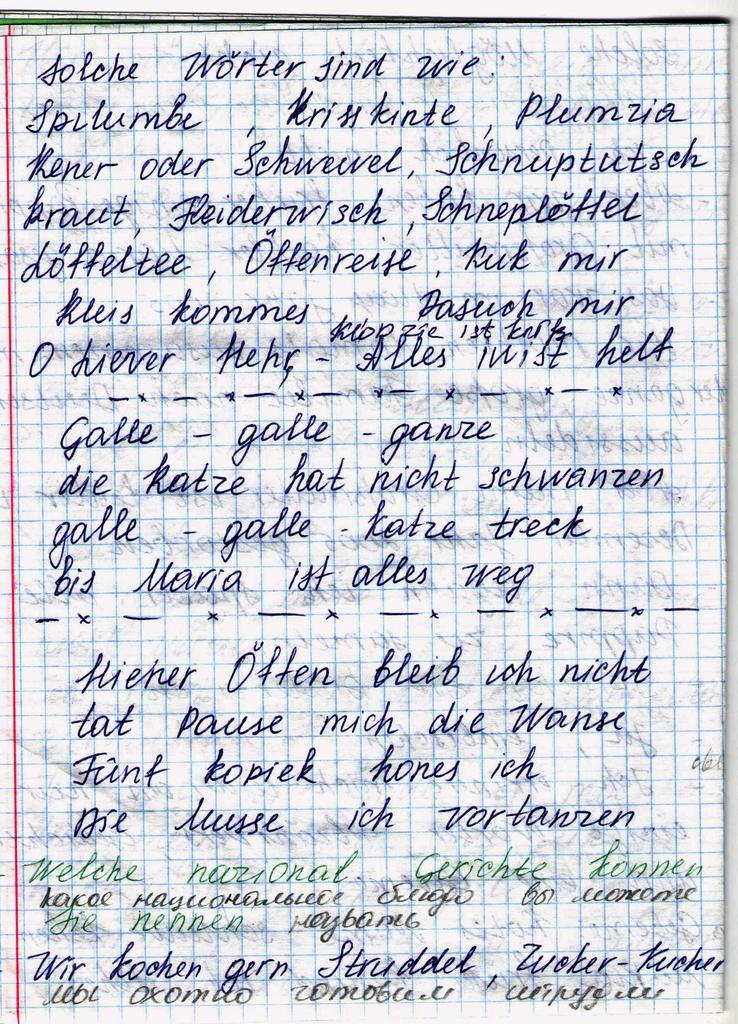 Solche Wörter sind wie:
Spilumbe, Krisskinte, Plumzia
Kener oder Schwewel, Schnuptutsch
kraut, Fleiderwisch, Schneplöffel
Löffeltee, Öffenreise, Kuk mir
kleis kommes Dasuch mir
Klopzie ist
O Liever Hehr, - Alles ist helf
Galle - galle - ganze
die Katze hat nicht schwanzen
galle - galle - Katze treck
bis Maria ist alles weg
Hieher Öffen bleib ich nicht
tat Pause mich die Wanse
Fünf kopiek hones ich
Die Musse ich vortanzen.
- Welche nazional. Gerichte können
какое национальное блюдо вы можете
Sie nennen назвать
- Wir kochen gern Struddel, Zucker-Kucher
мы охотно готовим штрудли